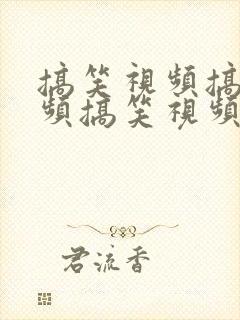 搞笑視頻搞
頻搞笑視頻
君流香